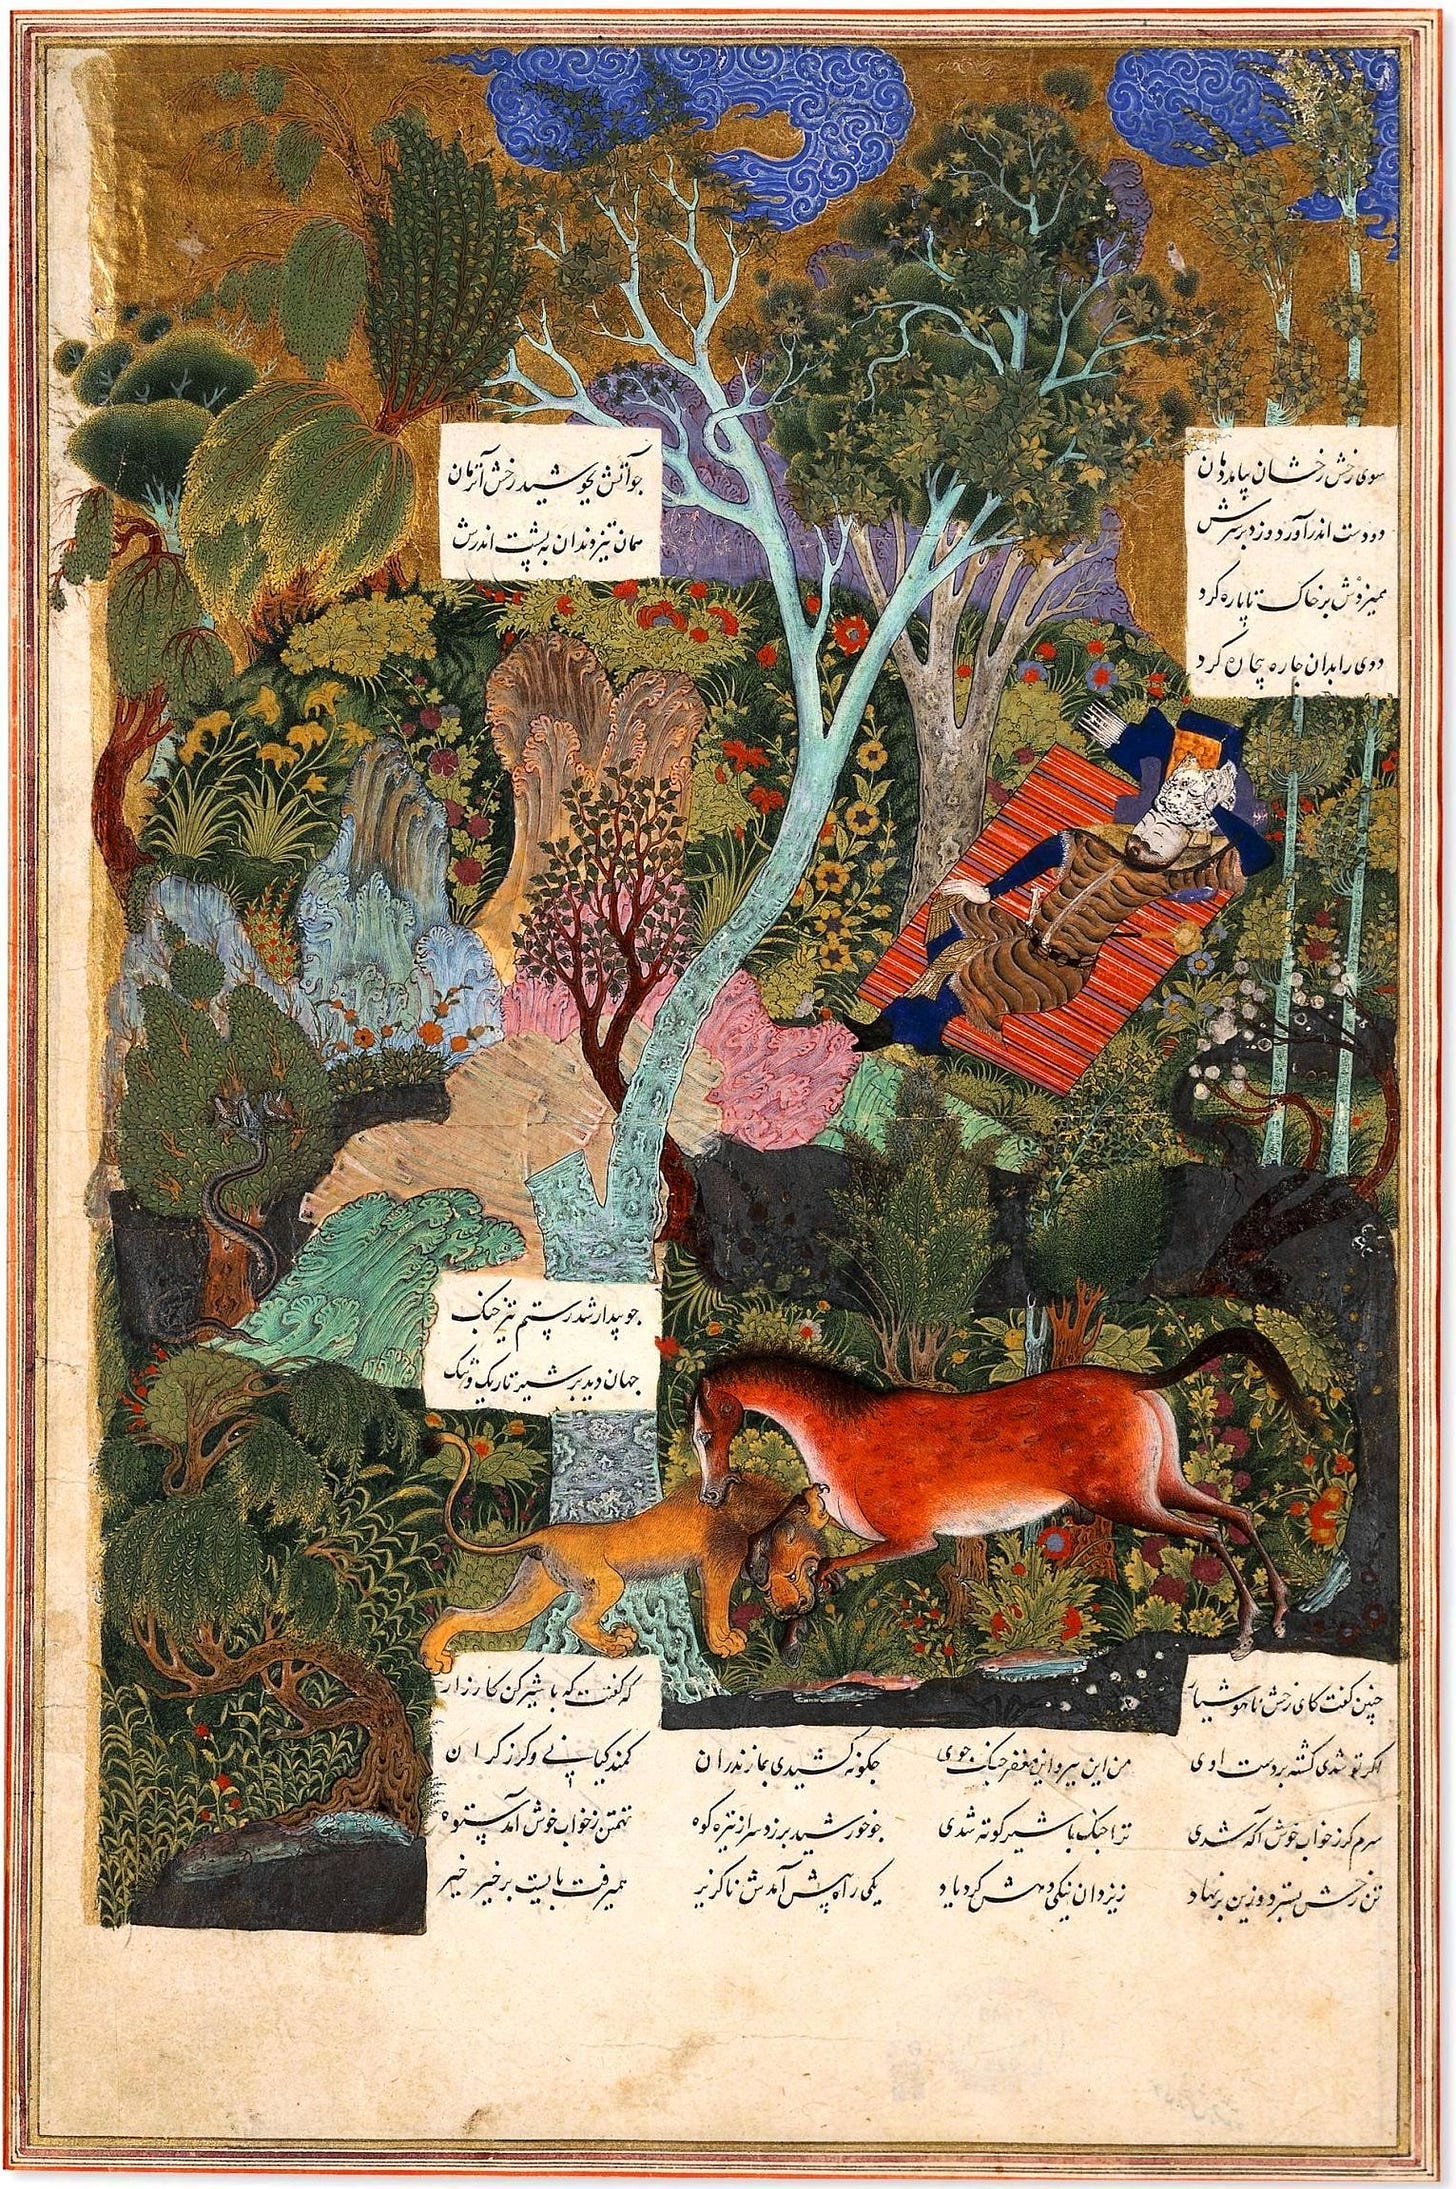 سوی رخش رخشان بیامد دمان
چو آتش بجوشید رخش آنزمان
دو دست اندر آورد و زد بر سرش
همان تیز دندان به پشت اندرش
همیزدش بر خاک تا پاره کرد
ددی را بدان چاره بیچاره کرد
چو بیدار شد رستم تیز چنگ
جهان دید بر شیر تاریک و تنگ
چنین گفت کای رخش ناهوشیار
که گفتت که با شیر کن کارزار
اگر تو شدی کشته بر دست اوی من این ببر و این مغفر جنگ جوی چگونه کشیدی بمازندران کمند کیانی و گرز گران
سرم گر ز خواب خوش آگه شدی ترا جنگ با شیر کوته شدی چو خورشید برزد سر از تیره کوه تهمتن ز خواب خوش آمد ستوه
تن رخش بسترد و زین برنهاد ز یزدان نیکی دهش کرد یاد یکی راه پیش آمدش ناگزیر همیرفت بایست بر خیر خیر